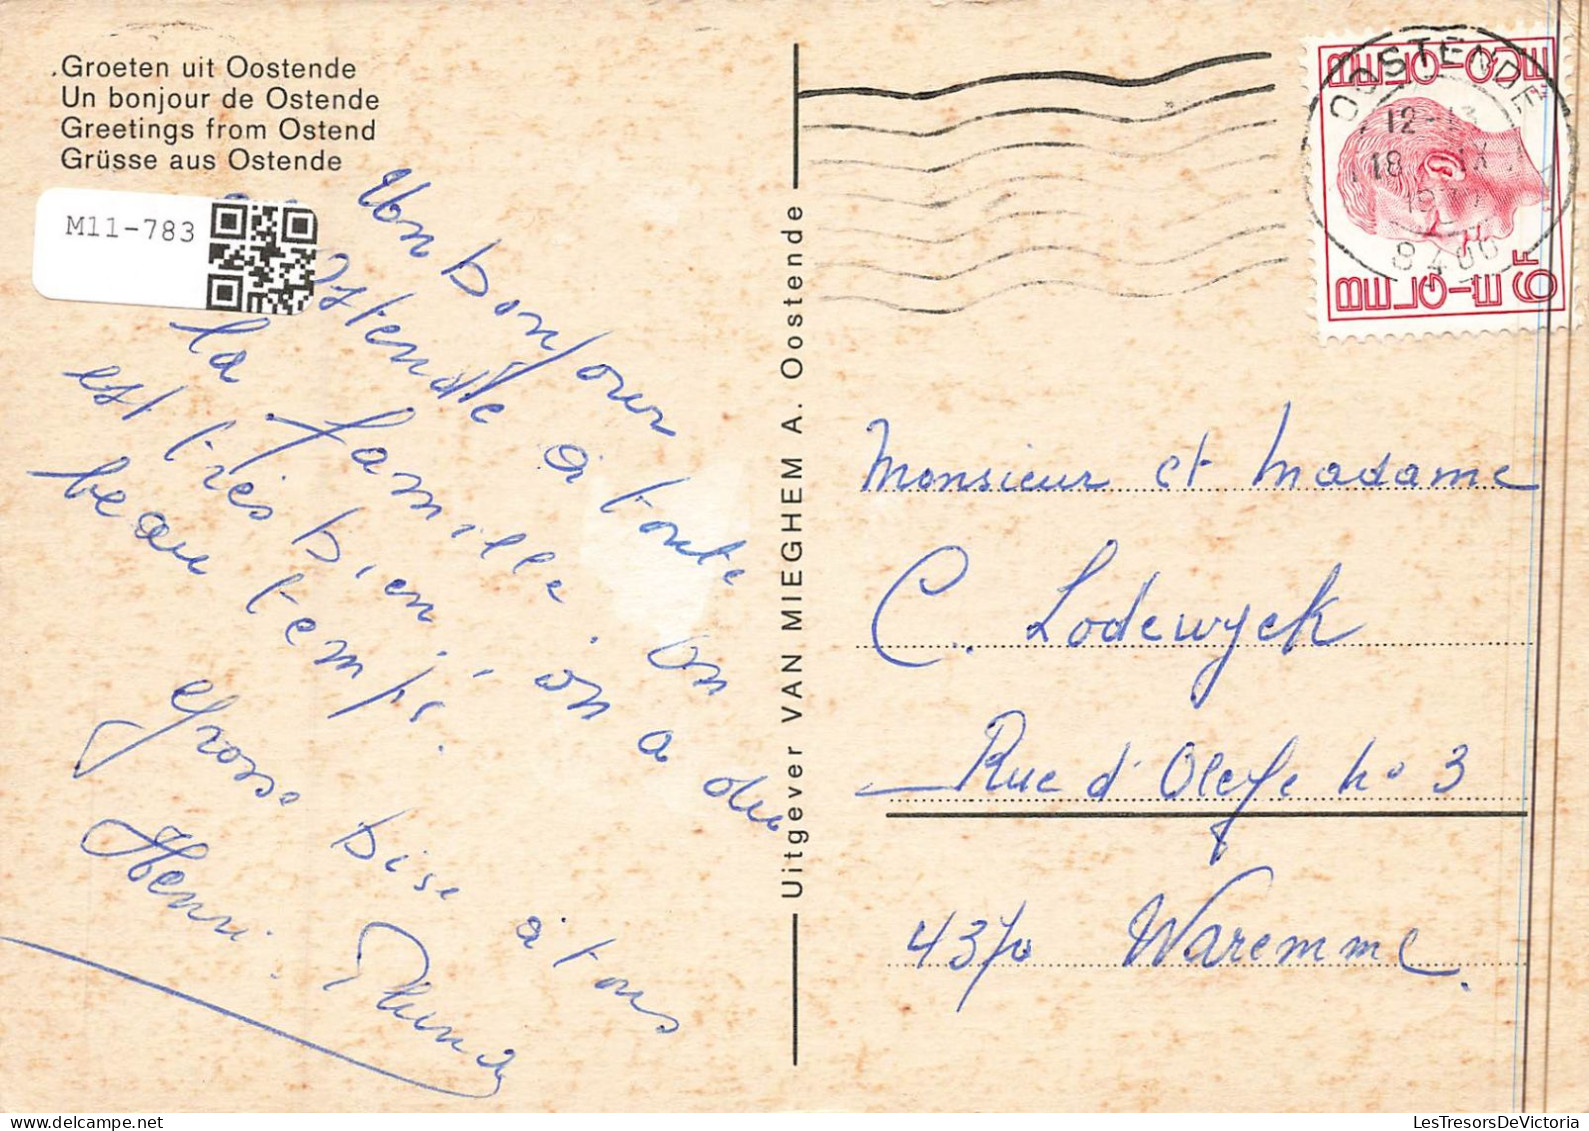 Groeten uit Oostende
Un bonjour de Ostende
Greetings from Ostend
Grüsse aus Ostende
M11-783
Un bonjour
Ostende à toute
la famille on
est très bien, on a du
beau temps.
grosse bise à tous
Henri
Uitgever VAN MIEGHEM A. Oostende
OOSTENDE
12-13
18 IX
8400
BELGIQUE
BELGIË 6F
Monsieur et Madame
C. Lodewyck
Rue d'Oleye no 3
4370 Waremme.
LesTresorsDeVictoria